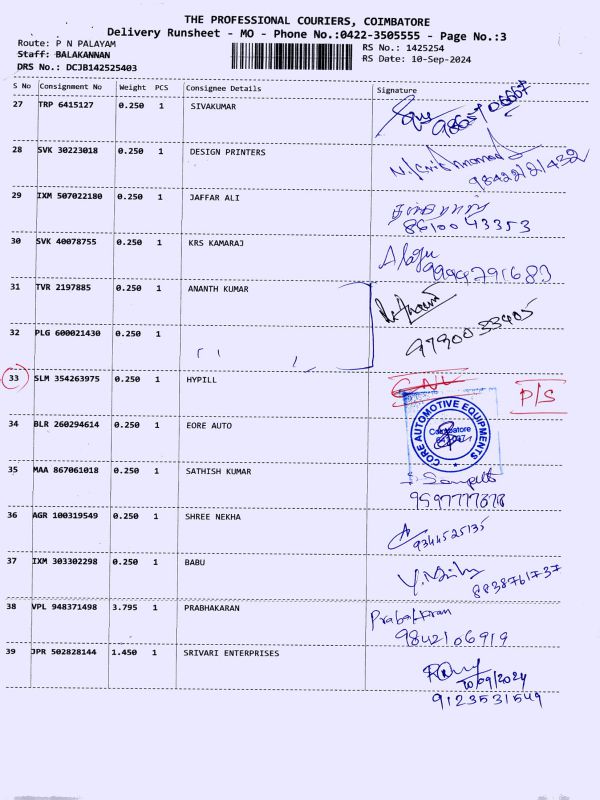 THE PROFESSIONAL COURIERS, COIMBATORE
Delivery Runsheet - MO - Phone No.:0422-3505555 - Page No.:3
Route: P N PALAYAM
RS No.: 1425254
Staff: BALAKANNAN
RS Date: 10-Sep-2024
DRS No.: DCJB142525403
S No Consignment No Weight PCS Consignee Details Signature
27 TRP 6415127 0.250 1 SIVAKUMAR
28 SVK 30223018 0.250 1 DESIGN PRINTERS
98422121432
29 IXM 507022180 0.250 1 JAFFAR ALI
8610043353
30 SVK 40078755 0.250 1 KRS KAMARAJ
Alagu
9994791683
31 TVR 2197885 0.250 1 ANANTH KUMAR
32 PLG 600021430 0.250 1
9790033405
33 SLM 354263975 0.250 1 HYPILL
P/S
34 BLR 260294614 0.250 1 EORE AUTO
CORE AUTOMOTIVE EQUIPMENTS
Coimbatore
35 MAA 867061018 0.250 1 SATHISH KUMAR
9597777678
36 AGR 100319549 0.250 1 SHREE NEKHA
9344525135
37 IXM 303302298 0.250 1 BABU
8838761737
38 VPL 948371498 3.795 1 PRABHAKARAN
Prabakaran
9842106919
39 JPR 502828144 1.450 1 SRIVARI ENTERPRISES
10/09/2024
9123531549